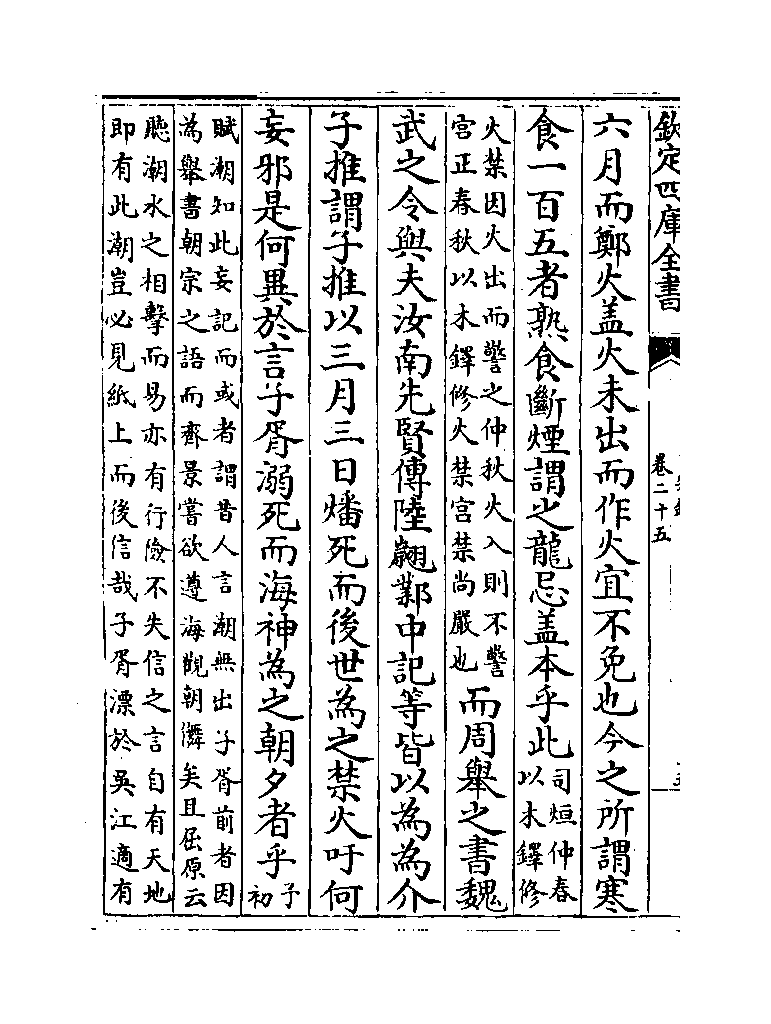 欽定四庫全書
卷二十五
六月而鄭火盖火未出而作火宜不免也今之所謂寒
食一百五者熟食斷煙謂之龍忌盖本乎此司烜仲春以木鐸修
火禁因火出而警之仲秋火入則不警宫正春秋以木鐸修火禁宫禁尚嚴也而周舉之書魏
武之令與夫汝南先賢傳陸翽鄴中記等皆以為為介
子推謂子推以三月三日燔死而後世為之禁火吁何
妄邪是何異於言子胥溺死而海神為之朝夕者乎子初
賦潮知此妄記而或者謂昔人言潮無出子胥前者因為舉書朝宗之語而齊景嘗欲遵海觀朝儛矣且屈原云
聽潮水之相擊而易亦有行險不失信之言自有天地即有此潮豈必見紙上而後信哉子胥漂於吳江適有